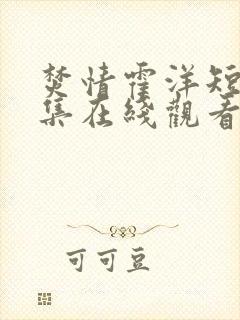 焚情霍洋短
集在綫觀看
可可豆